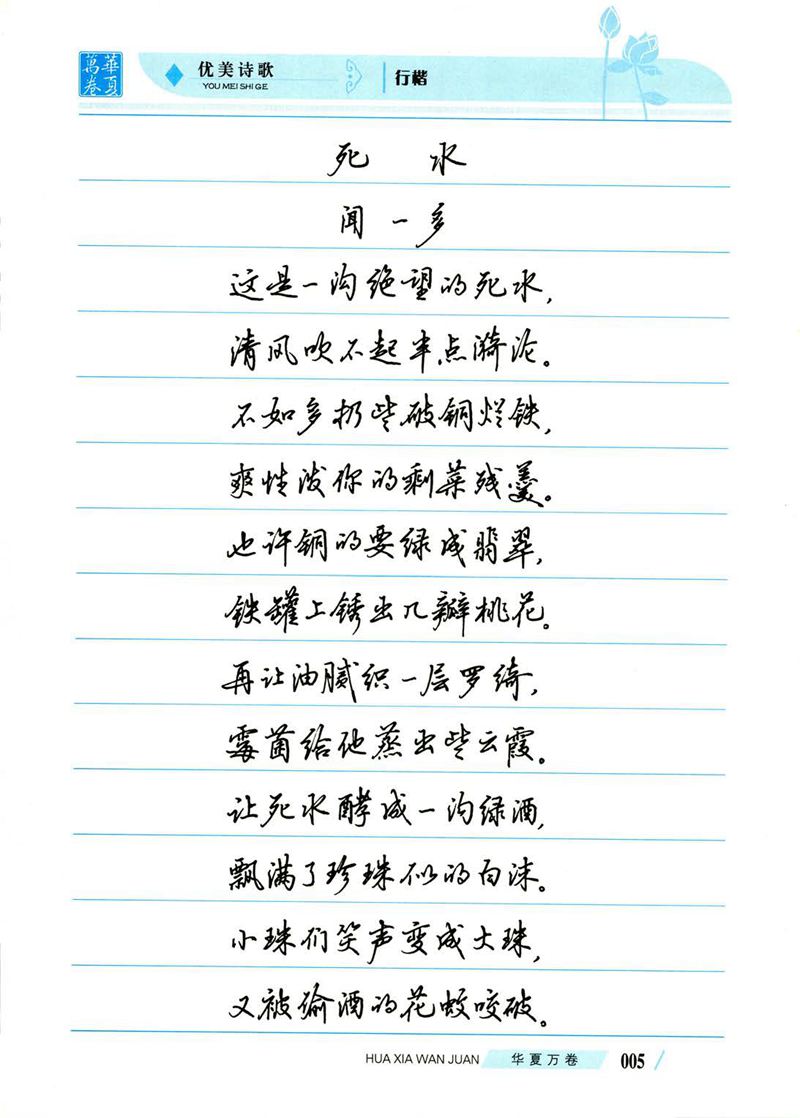 華夏萬卷
优美诗歌
YOU MEI SHI GE
行楷
死 水
闻一多
这是一沟绝望的死水，
清风吹不起半点漪沦。
不如多扔些破铜烂铁，
爽性泼你的剩菜残羹。
也许铜的要绿成翡翠，
铁罐上锈出几瓣桃花。
再让油腻织一层罗绮，
霉菌给他蒸出些云霞。
让死水酵成一沟绿酒，
飘满了珍珠似的白沫。
小珠们笑声变成大珠，
又被偷酒的花蚊咬破。
HUA XIA WAN JUAN
华夏万卷
005